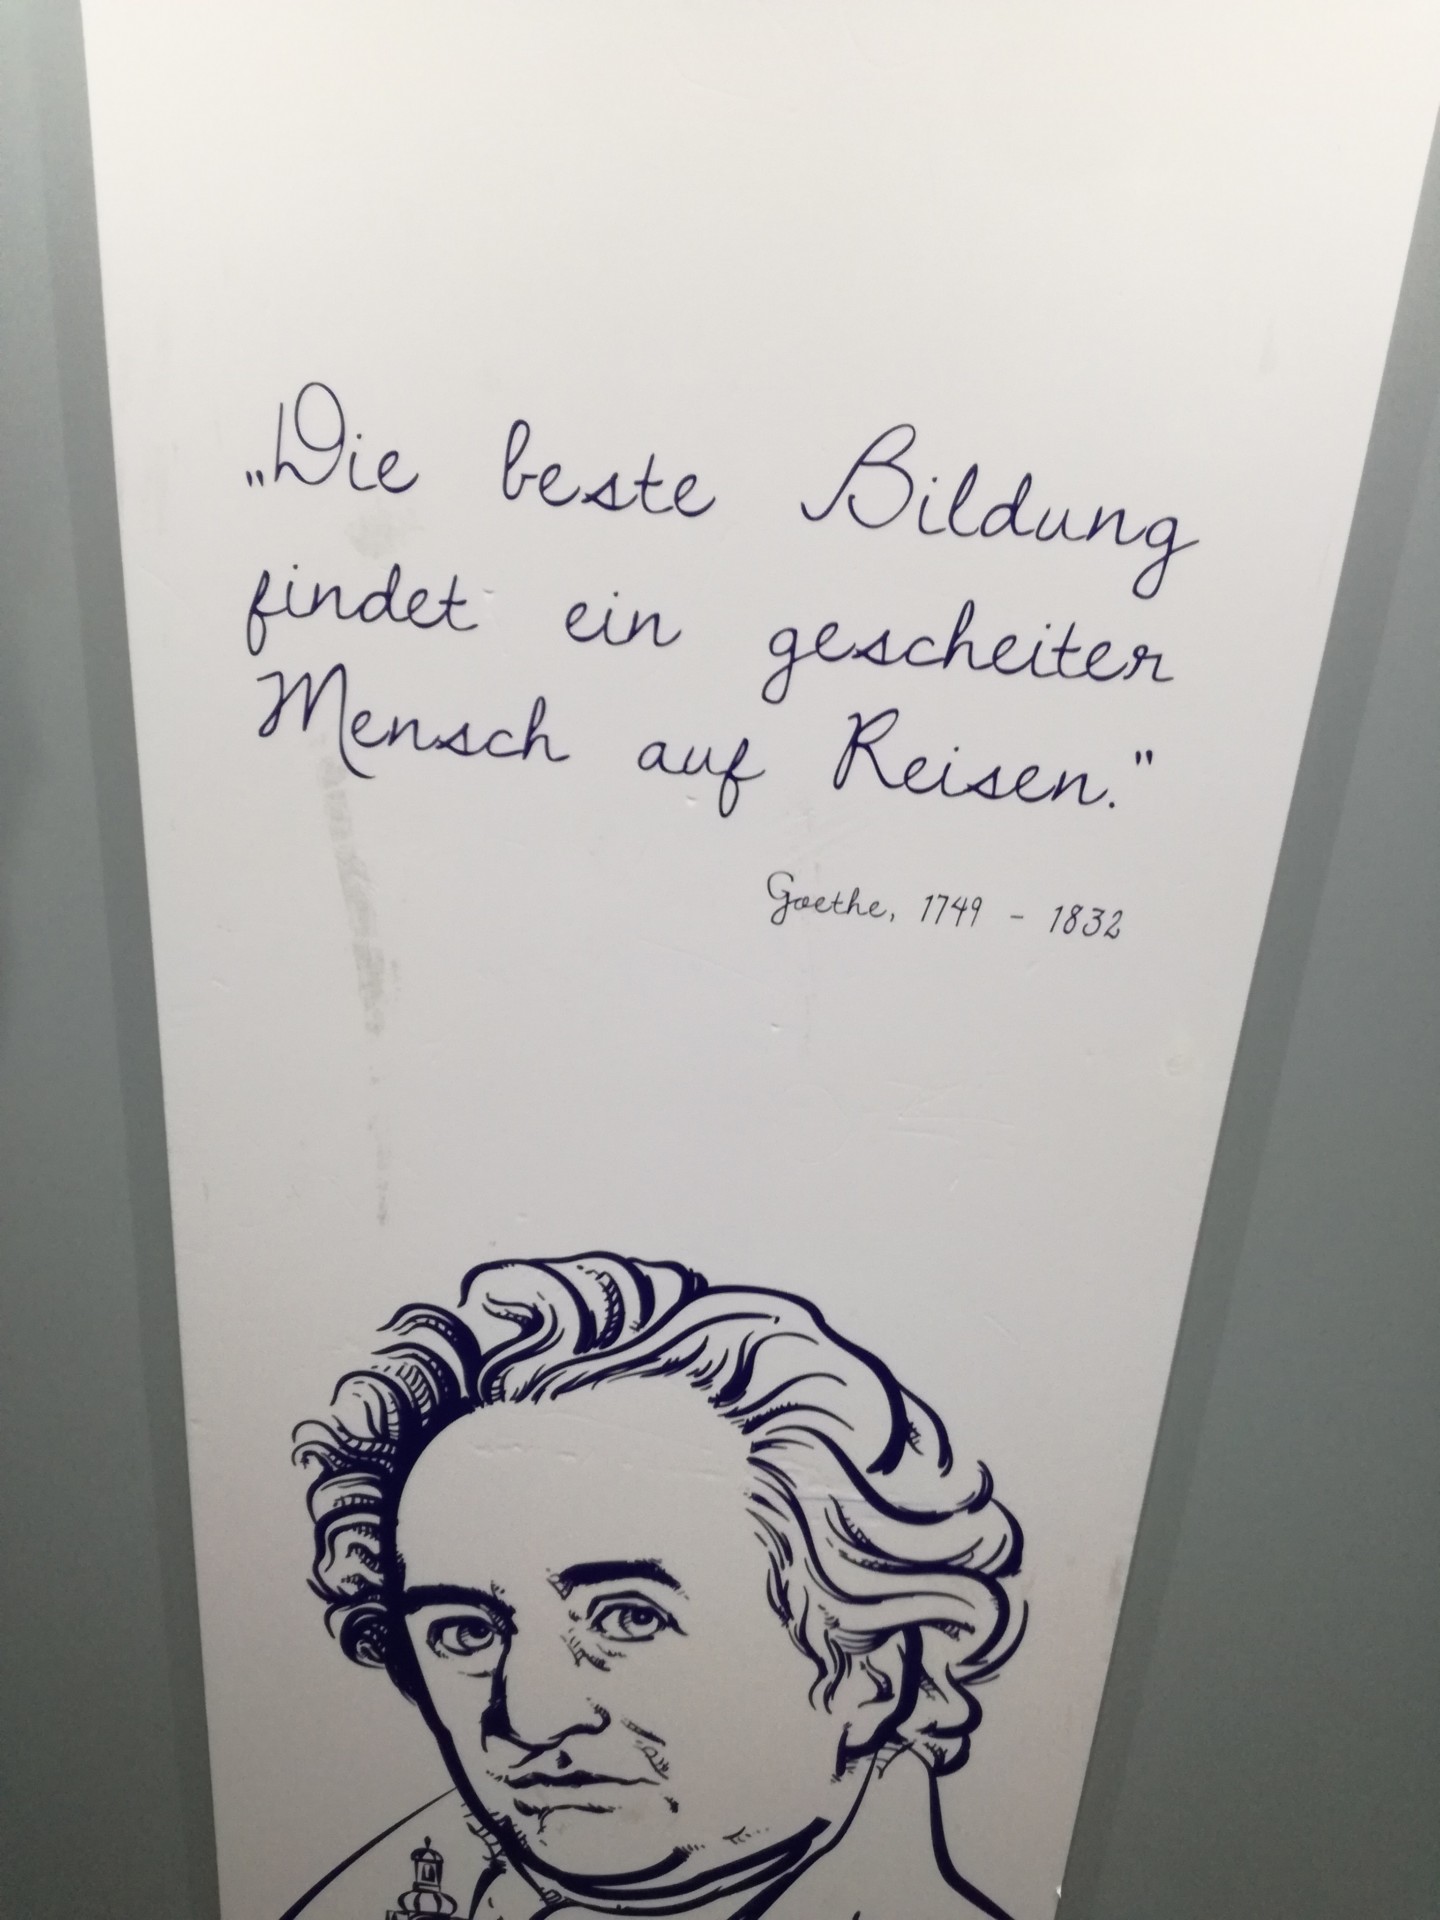 „Die beste Bildung
findet ein gescheiter
Mensch auf Reisen."
Goethe, 1749 - 1832